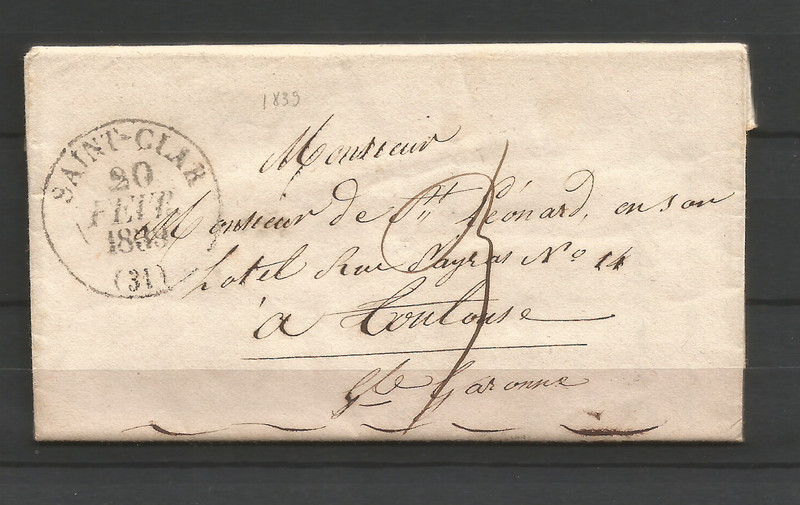 1839
SAINT-CLAR
20
FEVR
1839
(31)
Monsieur
Monsieur de St Léonard, en son
hotel Rue Nº 14
à Toulouse
Gde Garonne
3